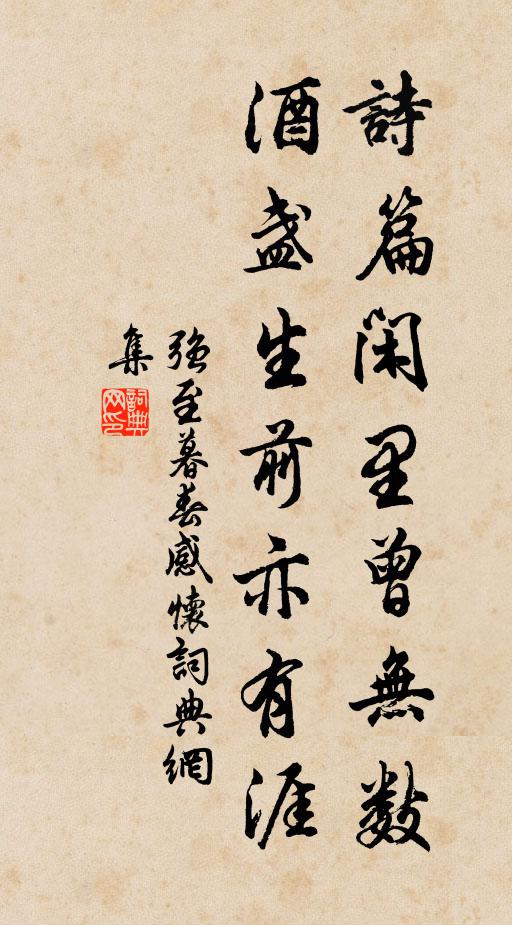 詩篇閑里曾無數
酒盞生前亦有涯
强至暮春感懷詞典網
集
詞典
网印